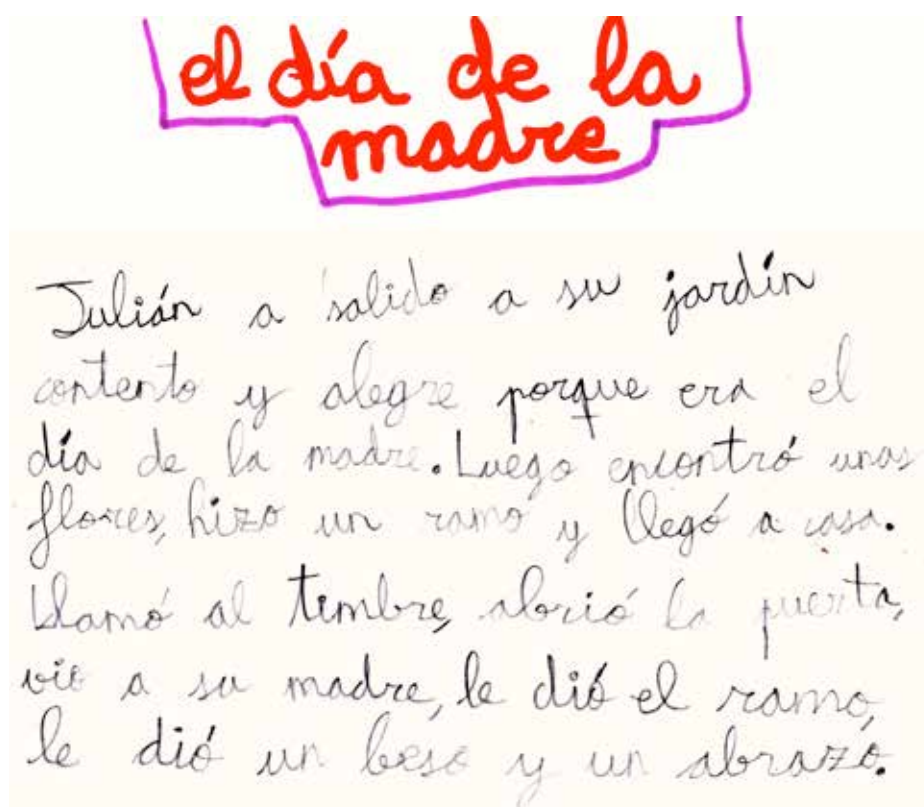 el día de la
madre
Julián a salido a su jardín
contento y alegre porque era el
día de la madre. Luego encontró unas
flores, hizo un ramo y llegó a casa.
Llamó al timbre, abrió la puerta,
vió a su madre, le dió el ramo,
le dió un beso y un abrazó.